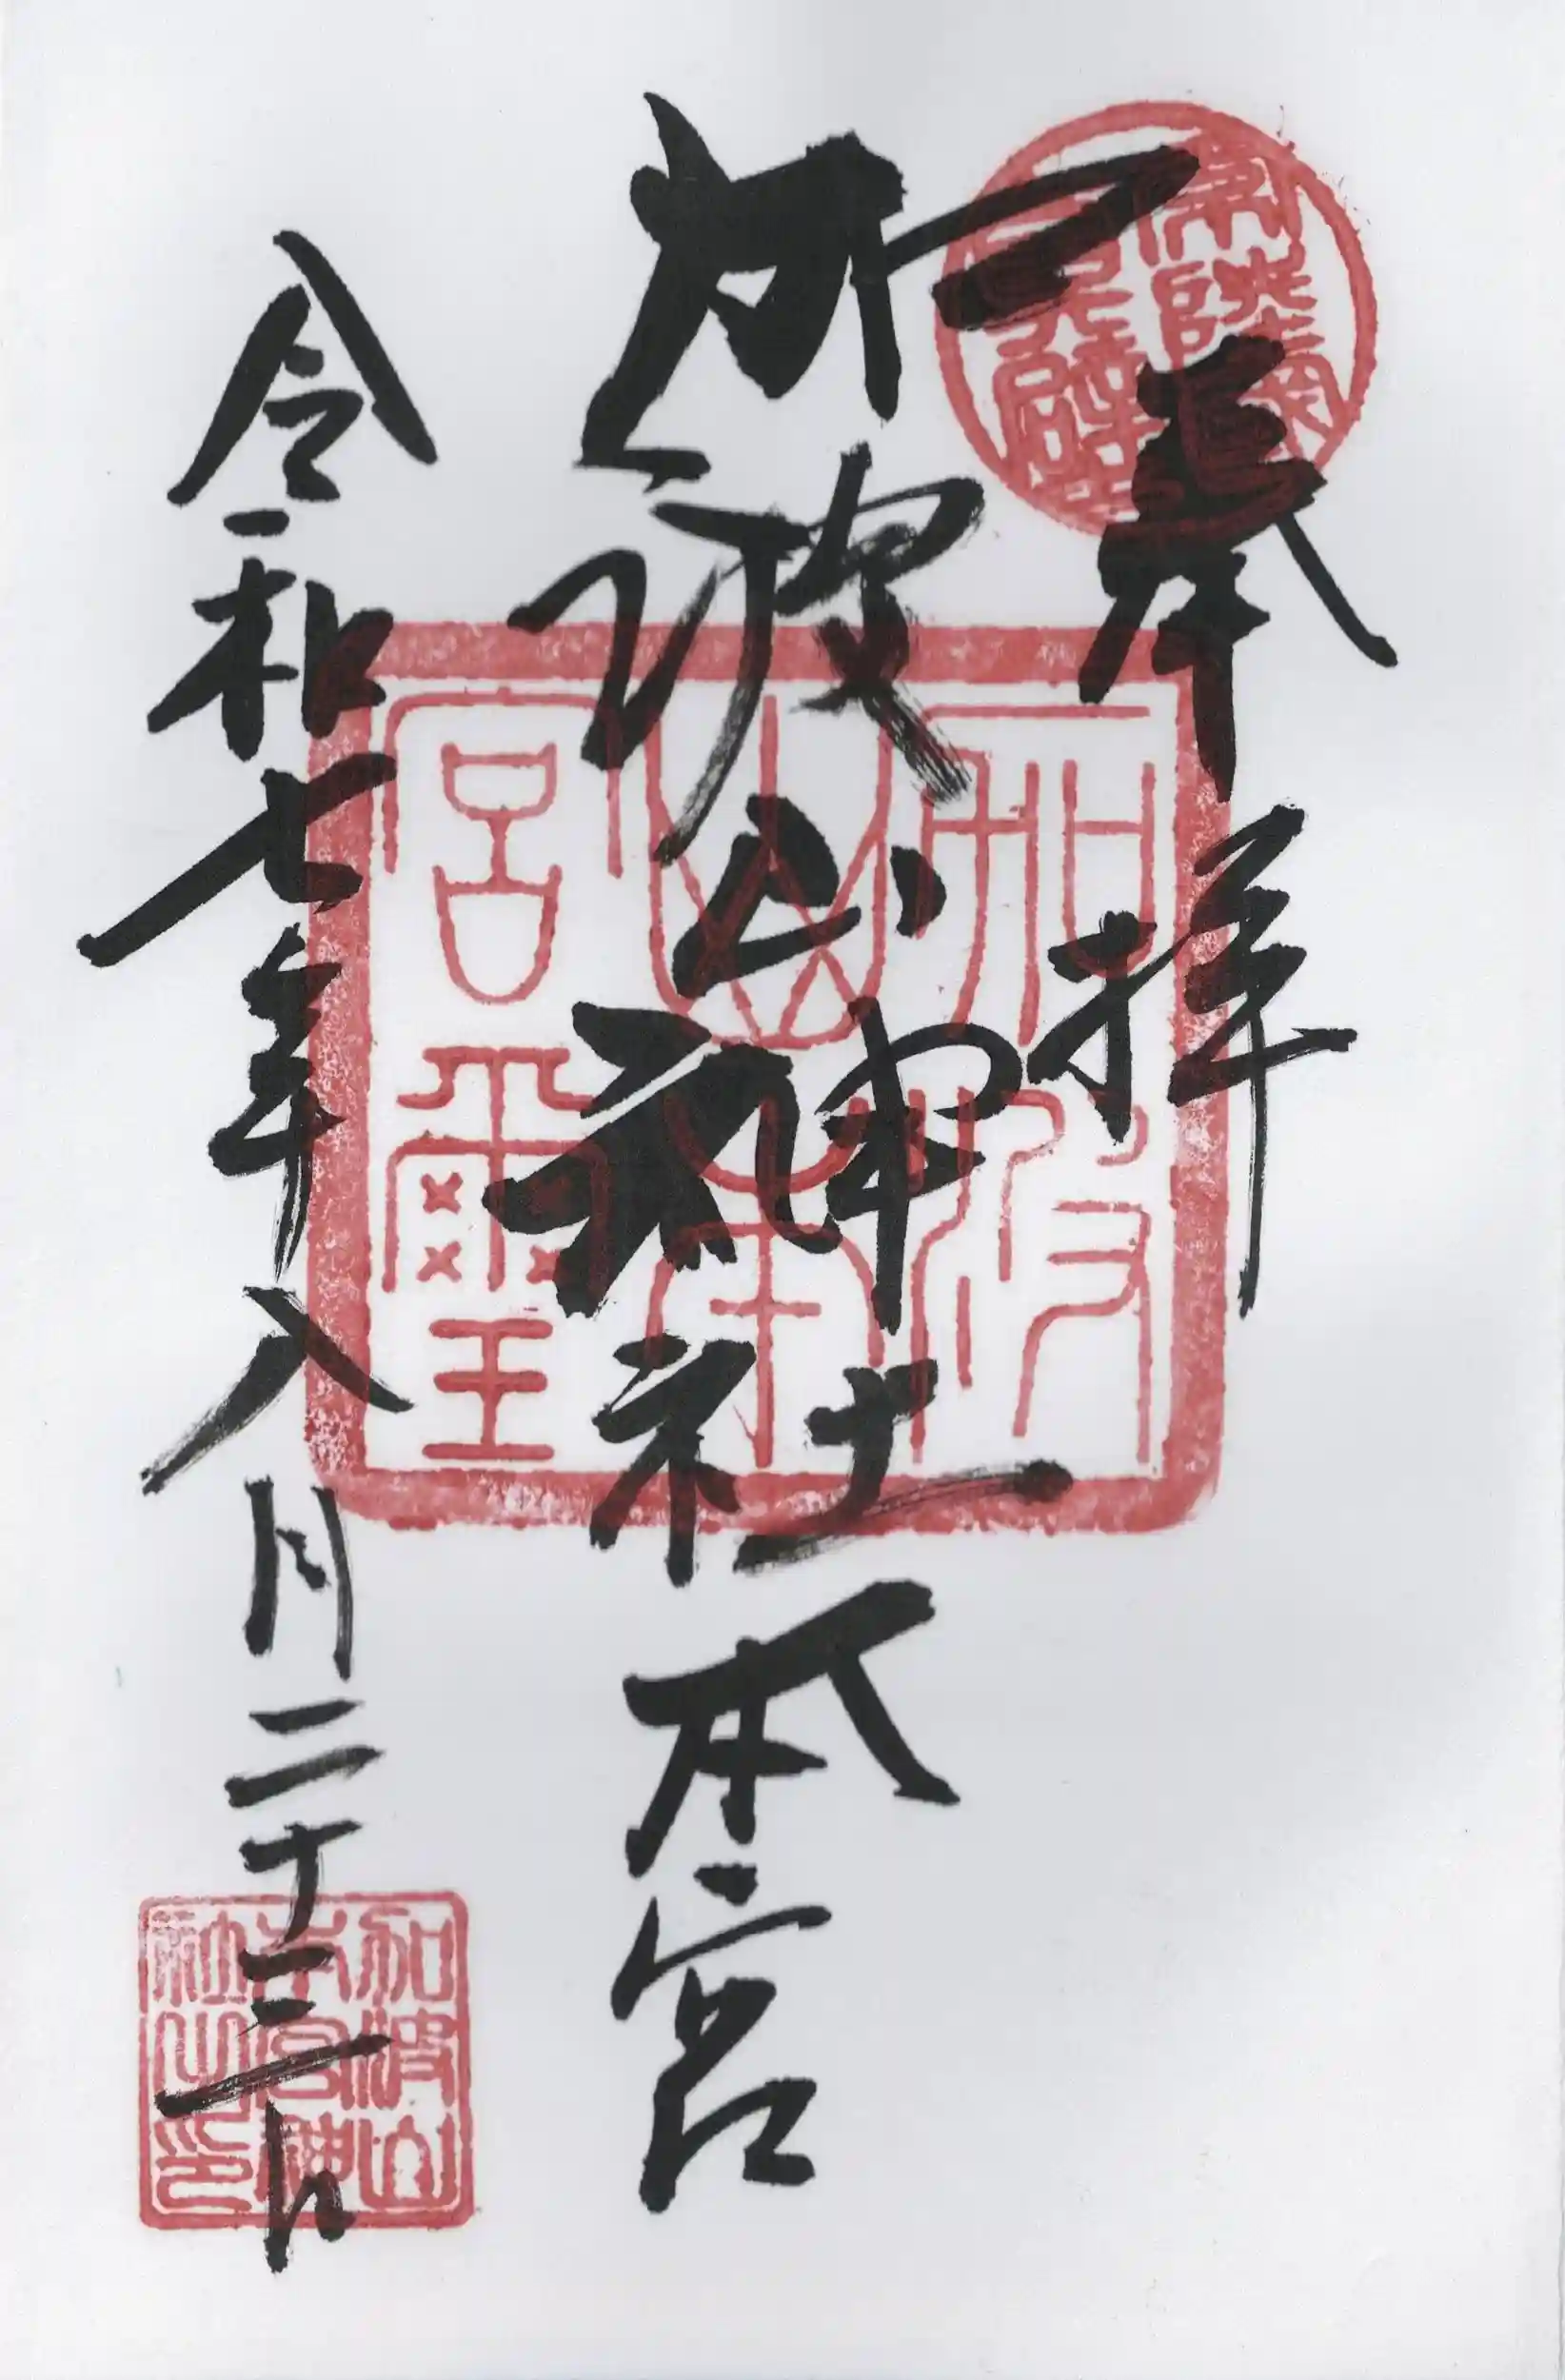 常陸
真壁
奉拝
加波山神社本宮
加波
山本
宮璽
令和七年八月二十三日
加波山
本宮神
社之印